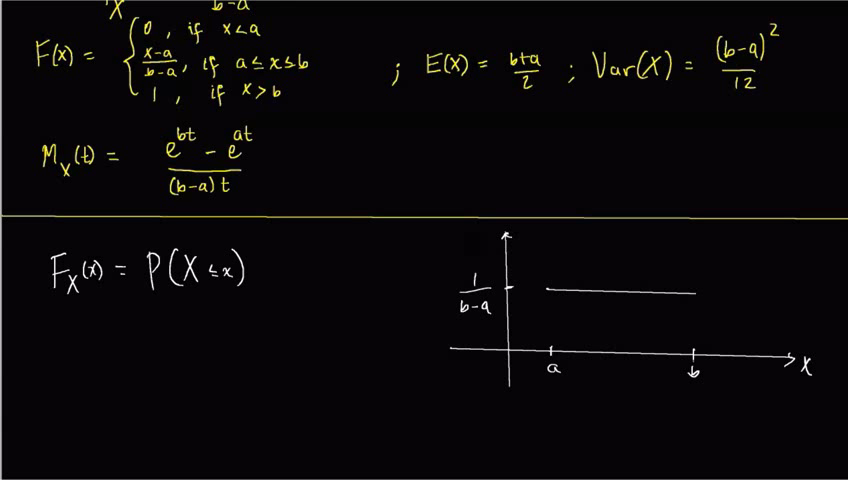 X b-a
F(x) = { 0 , if x<a
x-a/b-a , if a≤x≤b ; E(X) = b+a/2 ; Var(X) = (b-a)²/12
1 , if x>b
M_X(t) = e^bt - e^at / (b-a)t
F_X(x) = P(X ≤ x)
1/b-a
a b X